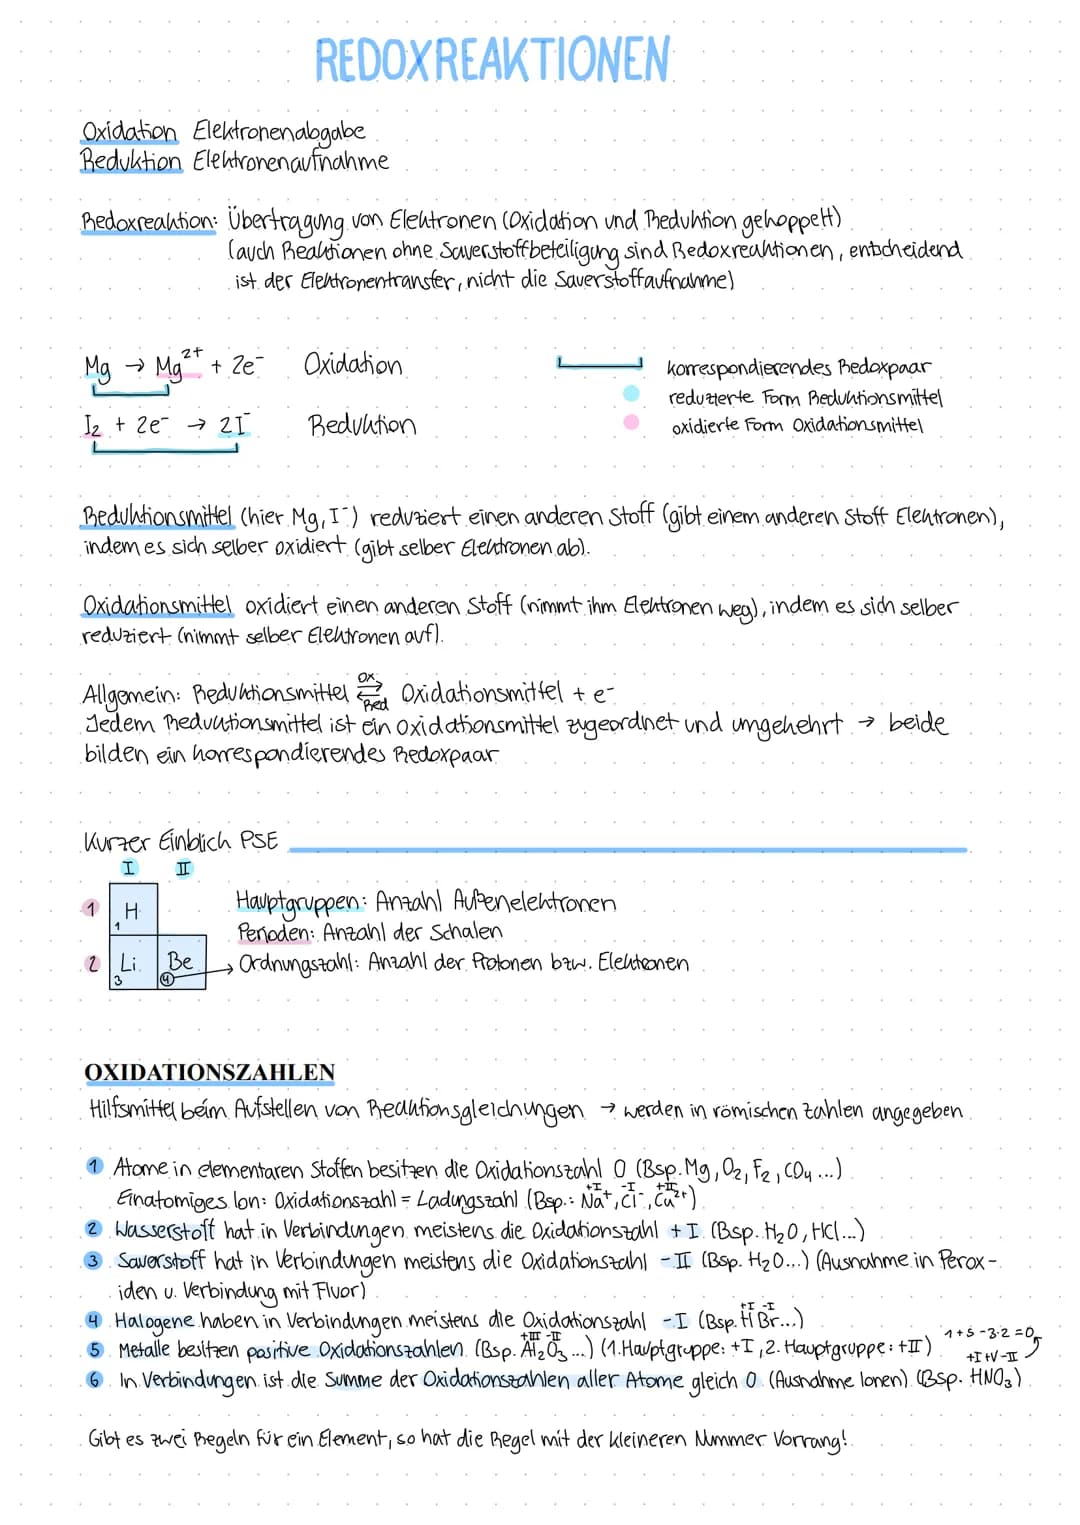 REDOXREAKTIONEN
Oxidation Elektronenabgabe
Reduktion Elektronenaufnahme
Redoxreaktion: Übertragung von Elektronen (Oxidation und Reduktion gekoppelt)
(auch Reaktionen ohne Sauerstoffbeteiligung sind Redoxreaktionen, entscheidend
ist der Elektronentransfer, nicht die Sauerstoffaufnahme)
Mg → Mg²⁺ + 2e⁻ Oxidation
I₂ + 2e⁻ → 2I⁻ Reduktion
korrespondierendes Redoxpaar
reduzierte Form Reduktionsmittel
oxidierte Form Oxidationsmittel
Reduktionsmittel (hier Mg, I⁻) reduziert einen anderen Stoff (gibt einem anderen Stoff Elektronen),
indem es sich selber oxidiert (gibt selber Elektronen ab).
Oxidationsmittel oxidiert einen anderen Stoff (nimmt ihm Elektronen weg), indem es sich selber
reduziert (nimmt selber Elektronen auf).
Ox
Allgemein: Reduktionsmittel ⇄ Oxidationsmittel + e⁻
Red
Jedem Reduktionsmittel ist ein Oxidationsmittel zugeordnet und umgekehrt → beide
bilden ein korrespondierendes Redoxpaar
Kurzer Einblick PSE
I II
1 H 1
2 Li 3 Be 4
Hauptgruppen: Anzahl Außenelektronen
Perioden: Anzahl der Schalen
→ Ordnungszahl: Anzahl der Protonen bzw. Elektronen
OXIDATIONSZAHLEN
Hilfsmittel beim Aufstellen von Reaktionsgleichungen → werden in römischen Zahlen angegeben
1 Atome in elementaren Stoffen besitzen die Oxidationszahl 0 (Bsp. Mg, O₂, F₂, CO₄...)
+I -I +II
Einatomiges Ion: Oxidationszahl = Ladungszahl (Bsp.: Na⁺, Cl⁻, Ca²⁺)
2 Wasserstoff hat in Verbindungen meistens die Oxidationszahl +I (Bsp. H₂O, HCl...)
3 Sauerstoff hat in Verbindungen meistens die Oxidationszahl -II (Bsp. H₂O...) (Ausnahme in Perox-
iden u. Verbindung mit Fluor)
+I -I
4 Halogene haben in Verbindungen meistens die Oxidationszahl -I (Bsp. H Br...)
+III -II
5 Metalle besitzen positive Oxidationszahlen (Bsp. Al₂O₃...) (1. Hauptgruppe: +I, 2. Hauptgruppe: +II)
1+5-3·2=0
+I +V -II
6 In Verbindungen ist die Summe der Oxidationszahlen aller Atome gleich 0 (Ausnahme Ionen) (Bsp. HNO₃)
Gibt es zwei Regeln für ein Element, so hat die Regel mit der kleineren Nummer Vorrang!